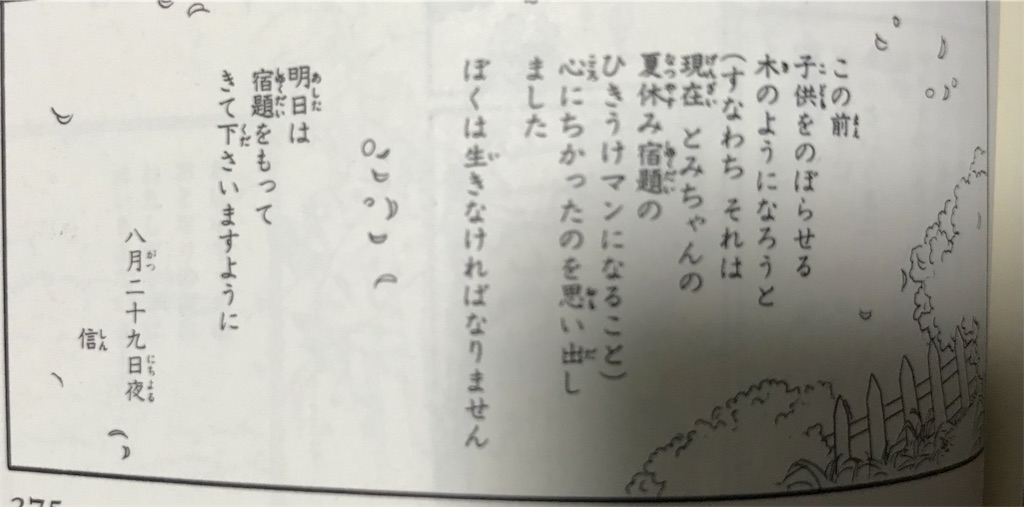 この前
子供をのぼらせる
木のようになろうと
(すなわち それは
現在 とみちゃんの
夏休み宿題の
ひきうけマンになること)
心にちかったのを思い出し
ました
ぼくは生きなければなりません
明日は
宿題をもって
きて下さいますように
八月二十九日夜
信
375